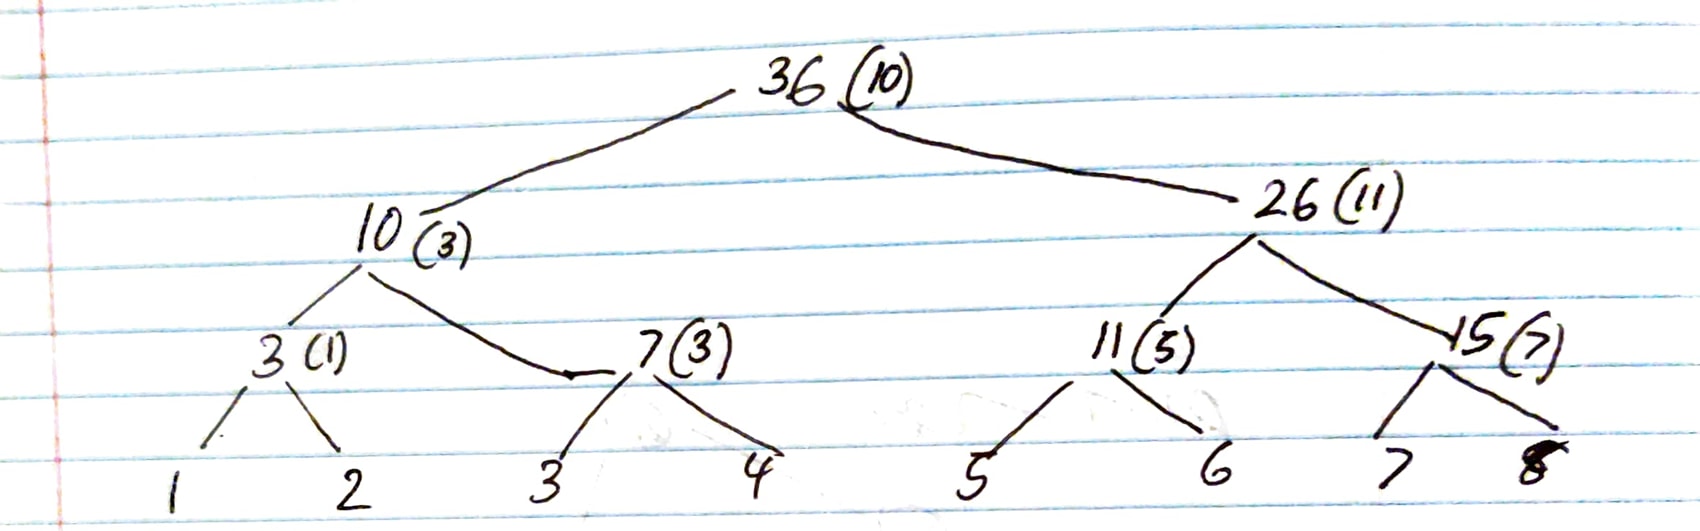 36 (10)
10 (3) 26 (11)
3 (1) 7 (3) 11 (5) 15 (7)
1 2 3 4 5 6 7 8